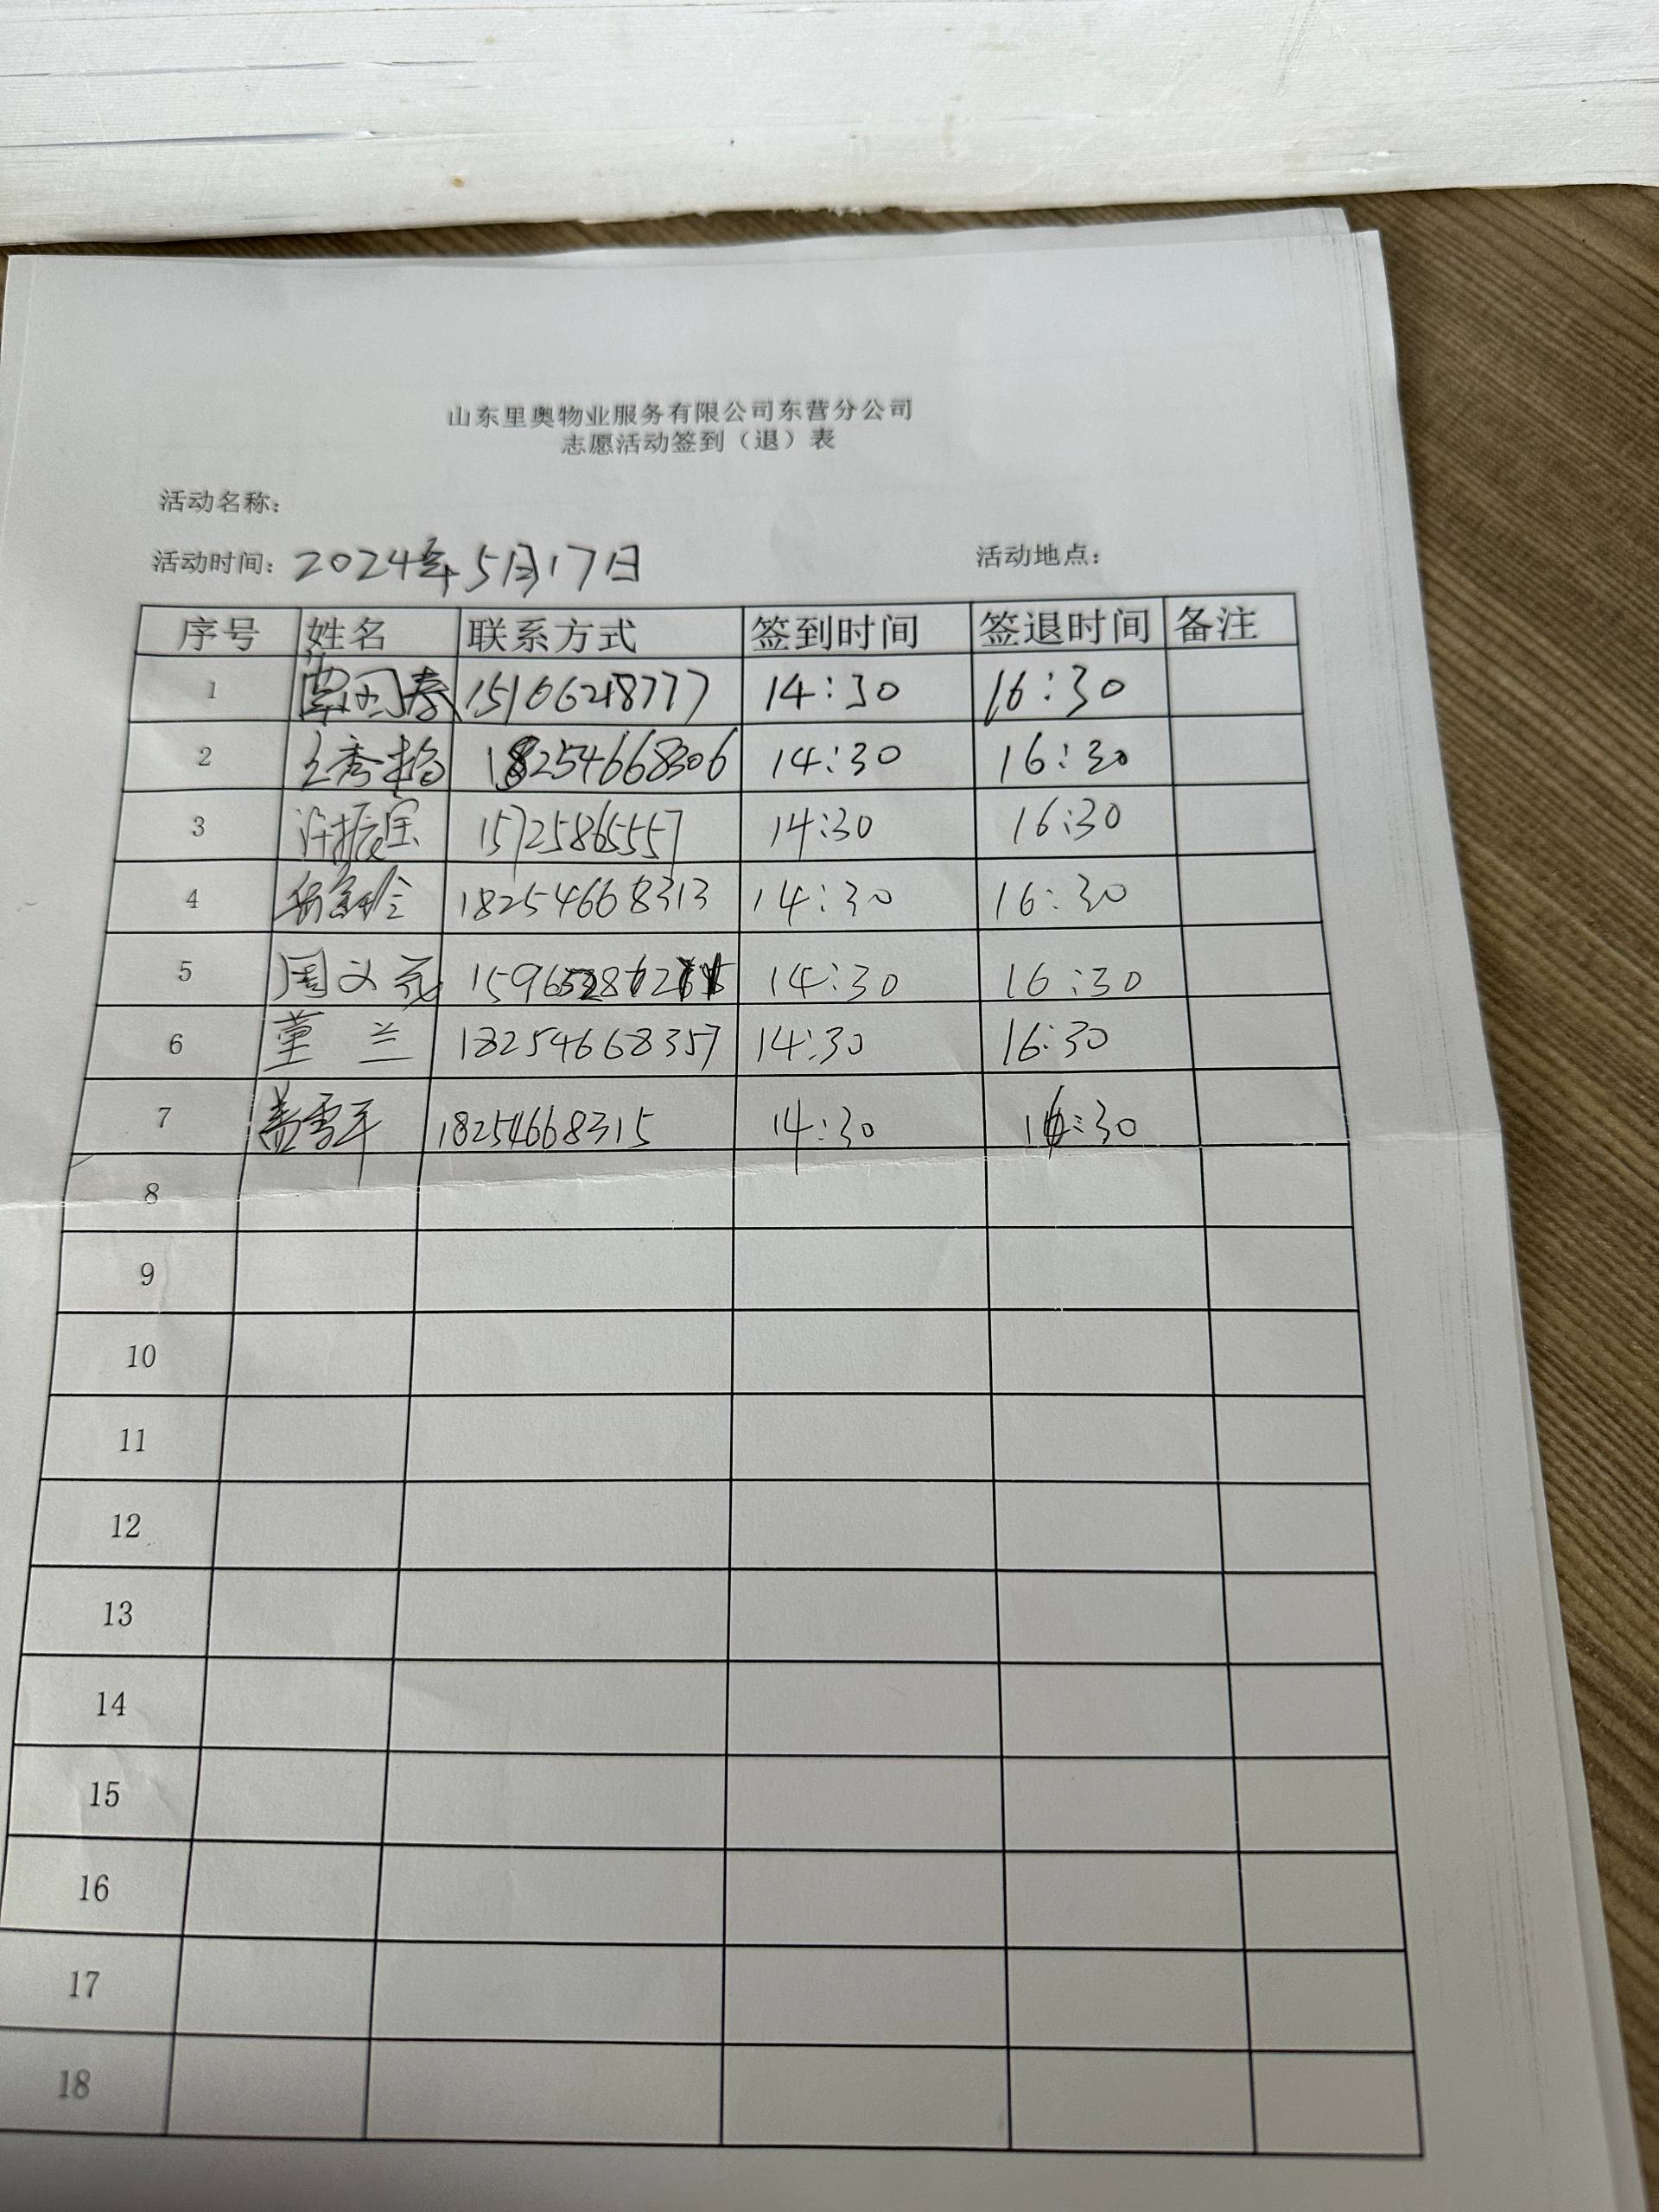 山东里奥物业服务有限公司东营分公司
志愿活动签到（退）表
活动名称：
活动时间：2024年5月17日 活动地点：
序号 姓名 联系方式 签到时间 签退时间 备注
1 15166218777 14:30 16:30
2 18254668306 14:30 16:30
3 许振宝 15725865557 14:30 16:30
4 18254668313 14:30 16:30
5 14:30 16:30
6 董兰 18254668357 14:30 16:30
7 盖雪平 18254668315 14:30 16:30
8
9
10
11
12
13
14
15
16
17
18